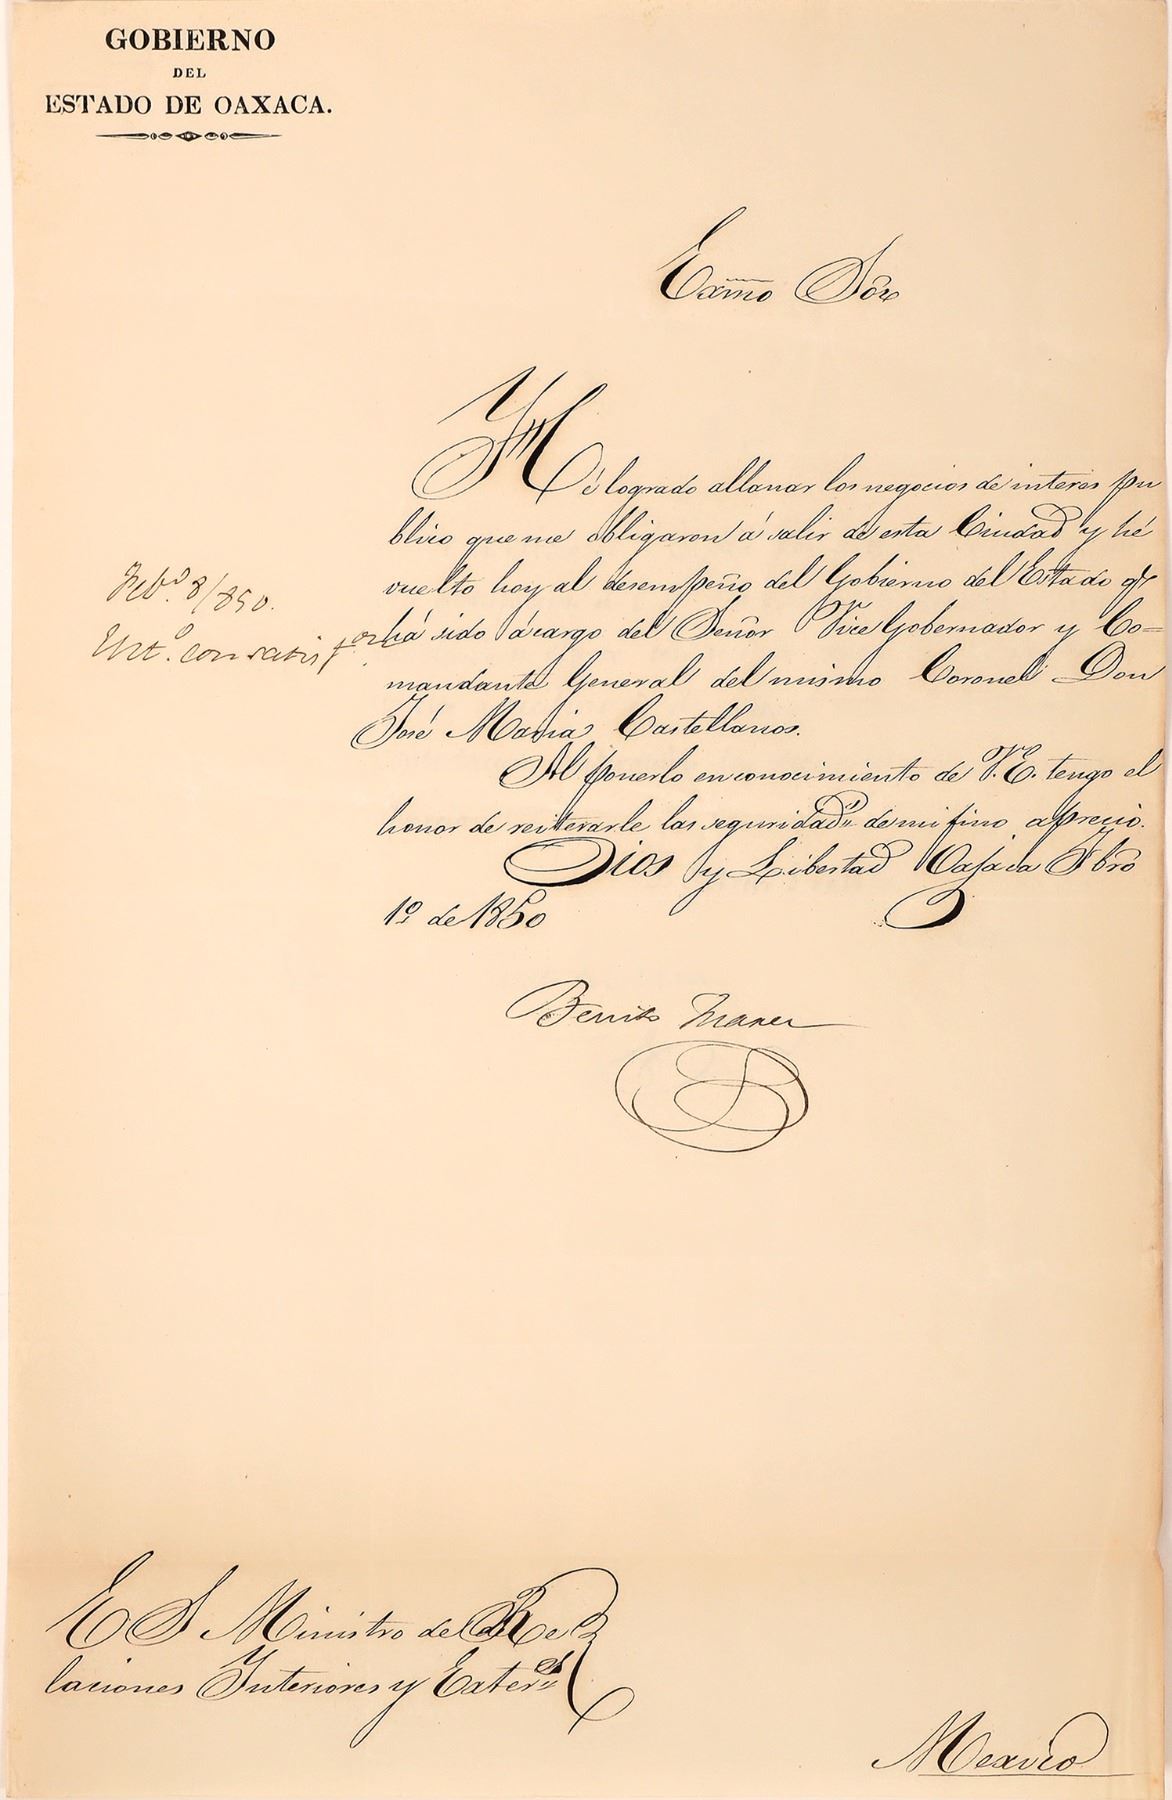 GOBIERNO
DEL
ESTADO DE OAXACA.
Exmo Sôr
Hé logrado allanar los negocios de interes pu
blico que me obligaron á salir de esta Ciudad y hé
vuelto hoy al desempeño del Gobierno del Estado qe
há sido á cargo del Señor Vice Gobernador y Co=
mandante General del mismo Coronel Don
José Maria Castellanos.
Al ponerlo en conocimiento de V. E. tengo el
honor de reiterarle las seguridads de mi fino aprecio.
Dios y Libertad Oajaca Fbro
1º de 1850
Febº 8/850.
Entº. con satisfon
Benito Juarez
E S Ministro de Re
laciones Interiores y Exters
Mexico